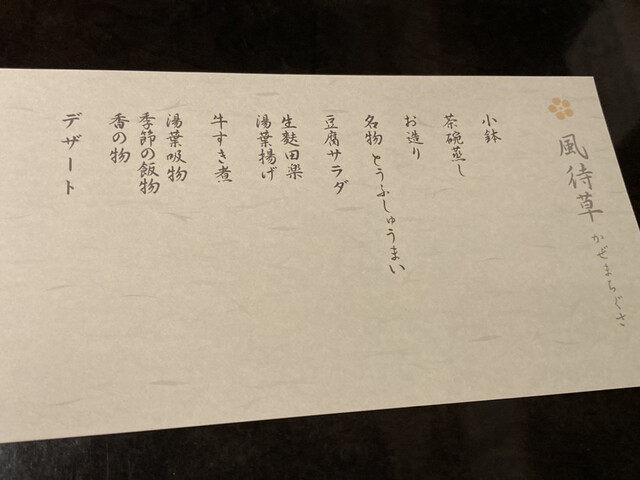 風待草 かぜまちぐさ
小鉢
茶碗蒸し
お造り
名物 とうふしゅうまい
豆腐サラダ
生麩田楽
湯葉揚げ
牛すき煮
湯葉吸物
季節の飯物
香の物
デザート